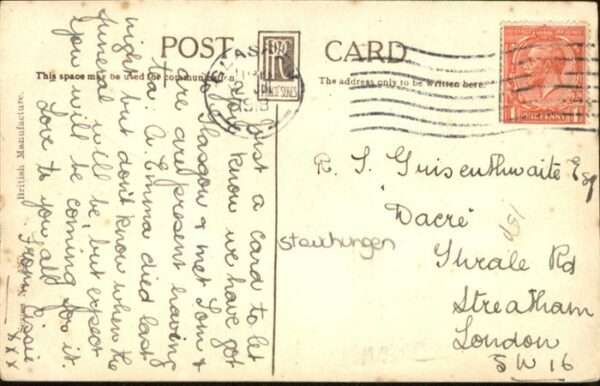 POST CARD
This space may be used for communication.
The address only to be written here.
British Manufacture.
R
1
ONE PENNY
1
Just a card to let
you know we have got
to Glasgow & met Tom &
are at present having
tea. A. Emma died last
night but don't know when the
funeral will be, but expect
you will be coming for it.
Love to you all
From Cissie
xxx
R. J. Guisenthwaite Esq
"Dacre"
Thrale Rd
Streatham
London
SW 16